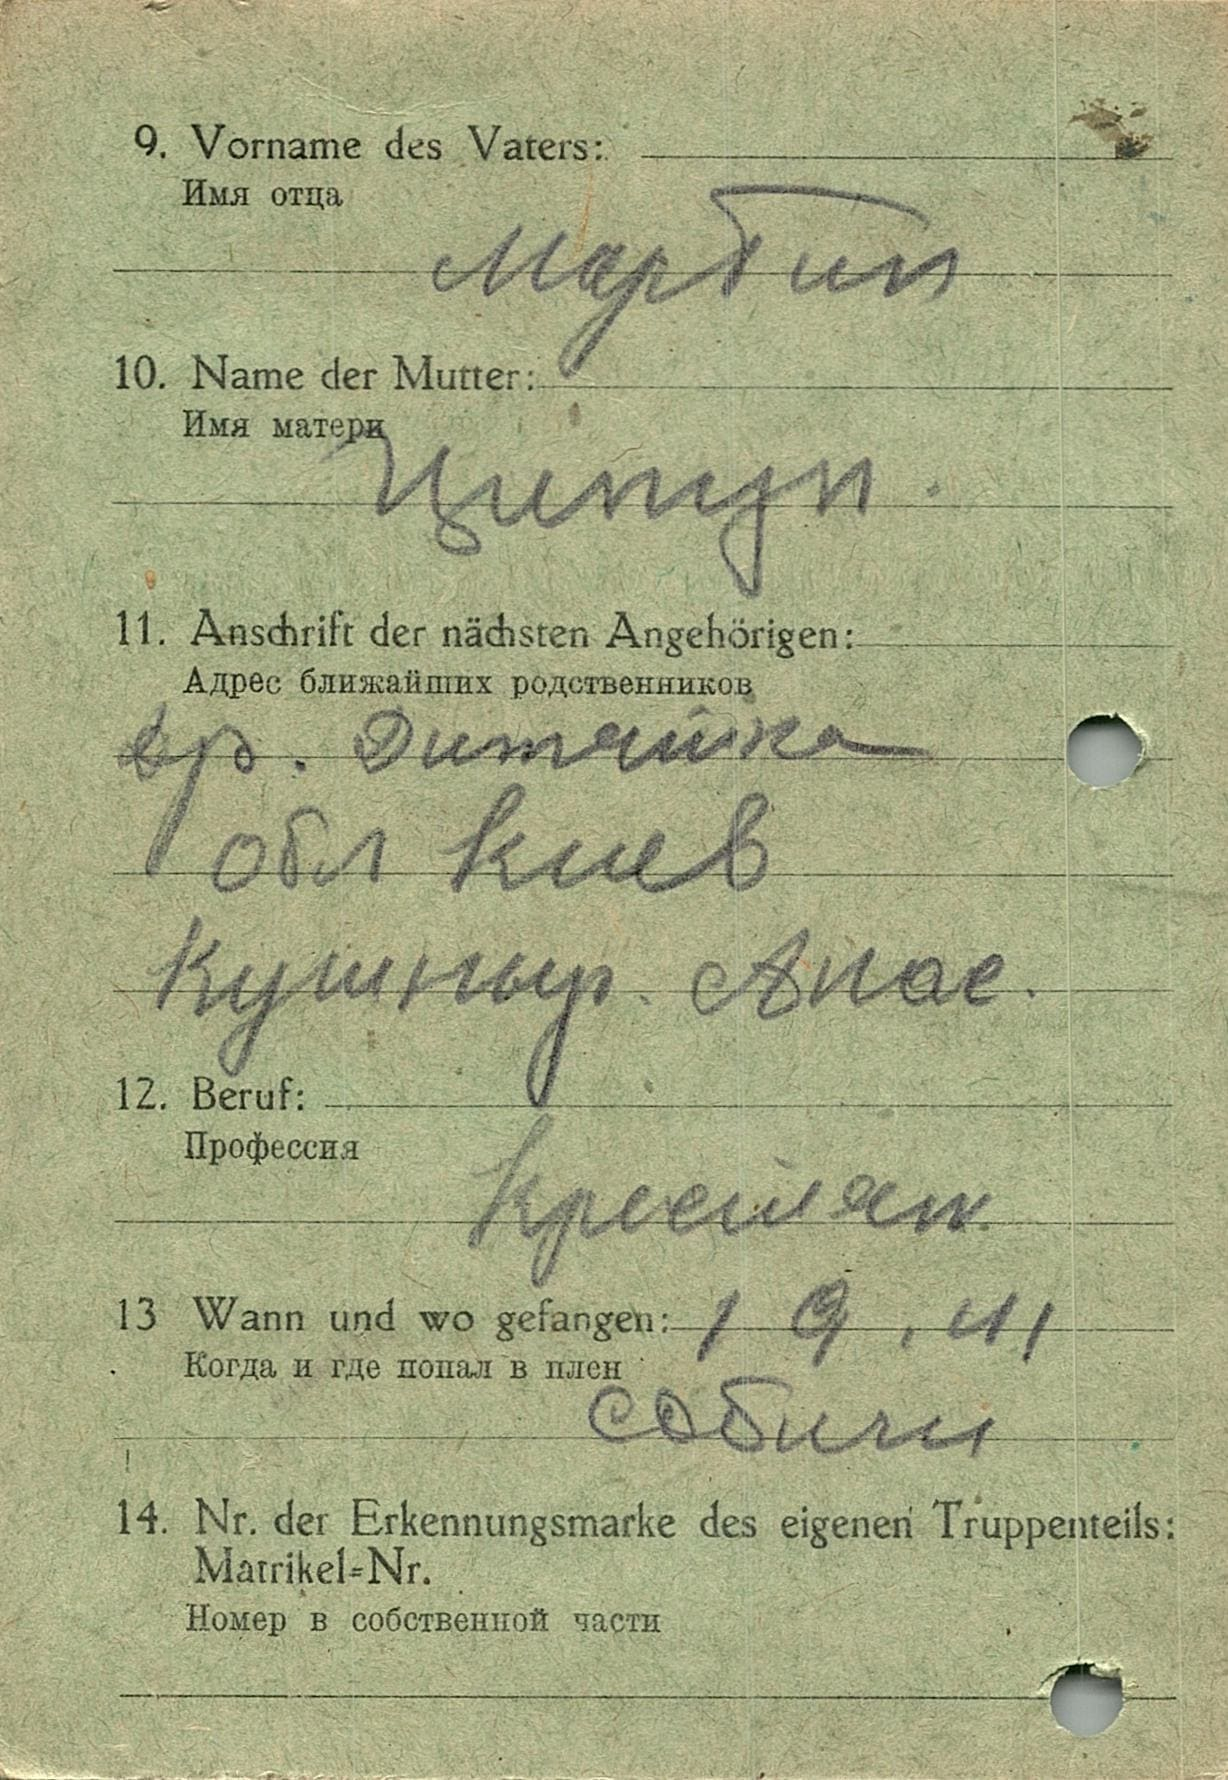 9. Vorname des Vaters:
Имя отца
Мартин
10. Name der Mutter:
Имя матери
Ципун.
11. Anschrift der nächsten Angehörigen:
Адрес ближайших родственников
обл Киев
Кушныр. Апас.
12. Beruf:
Профессия
Крестян.
13 Wann und wo gefangen: 1 9. 41
Когда и где попал в плен
Собичи
14. Nr. der Erkennungsmarke des eigenen Truppenteils:
Matrikel=Nr.
Номер в собственной части